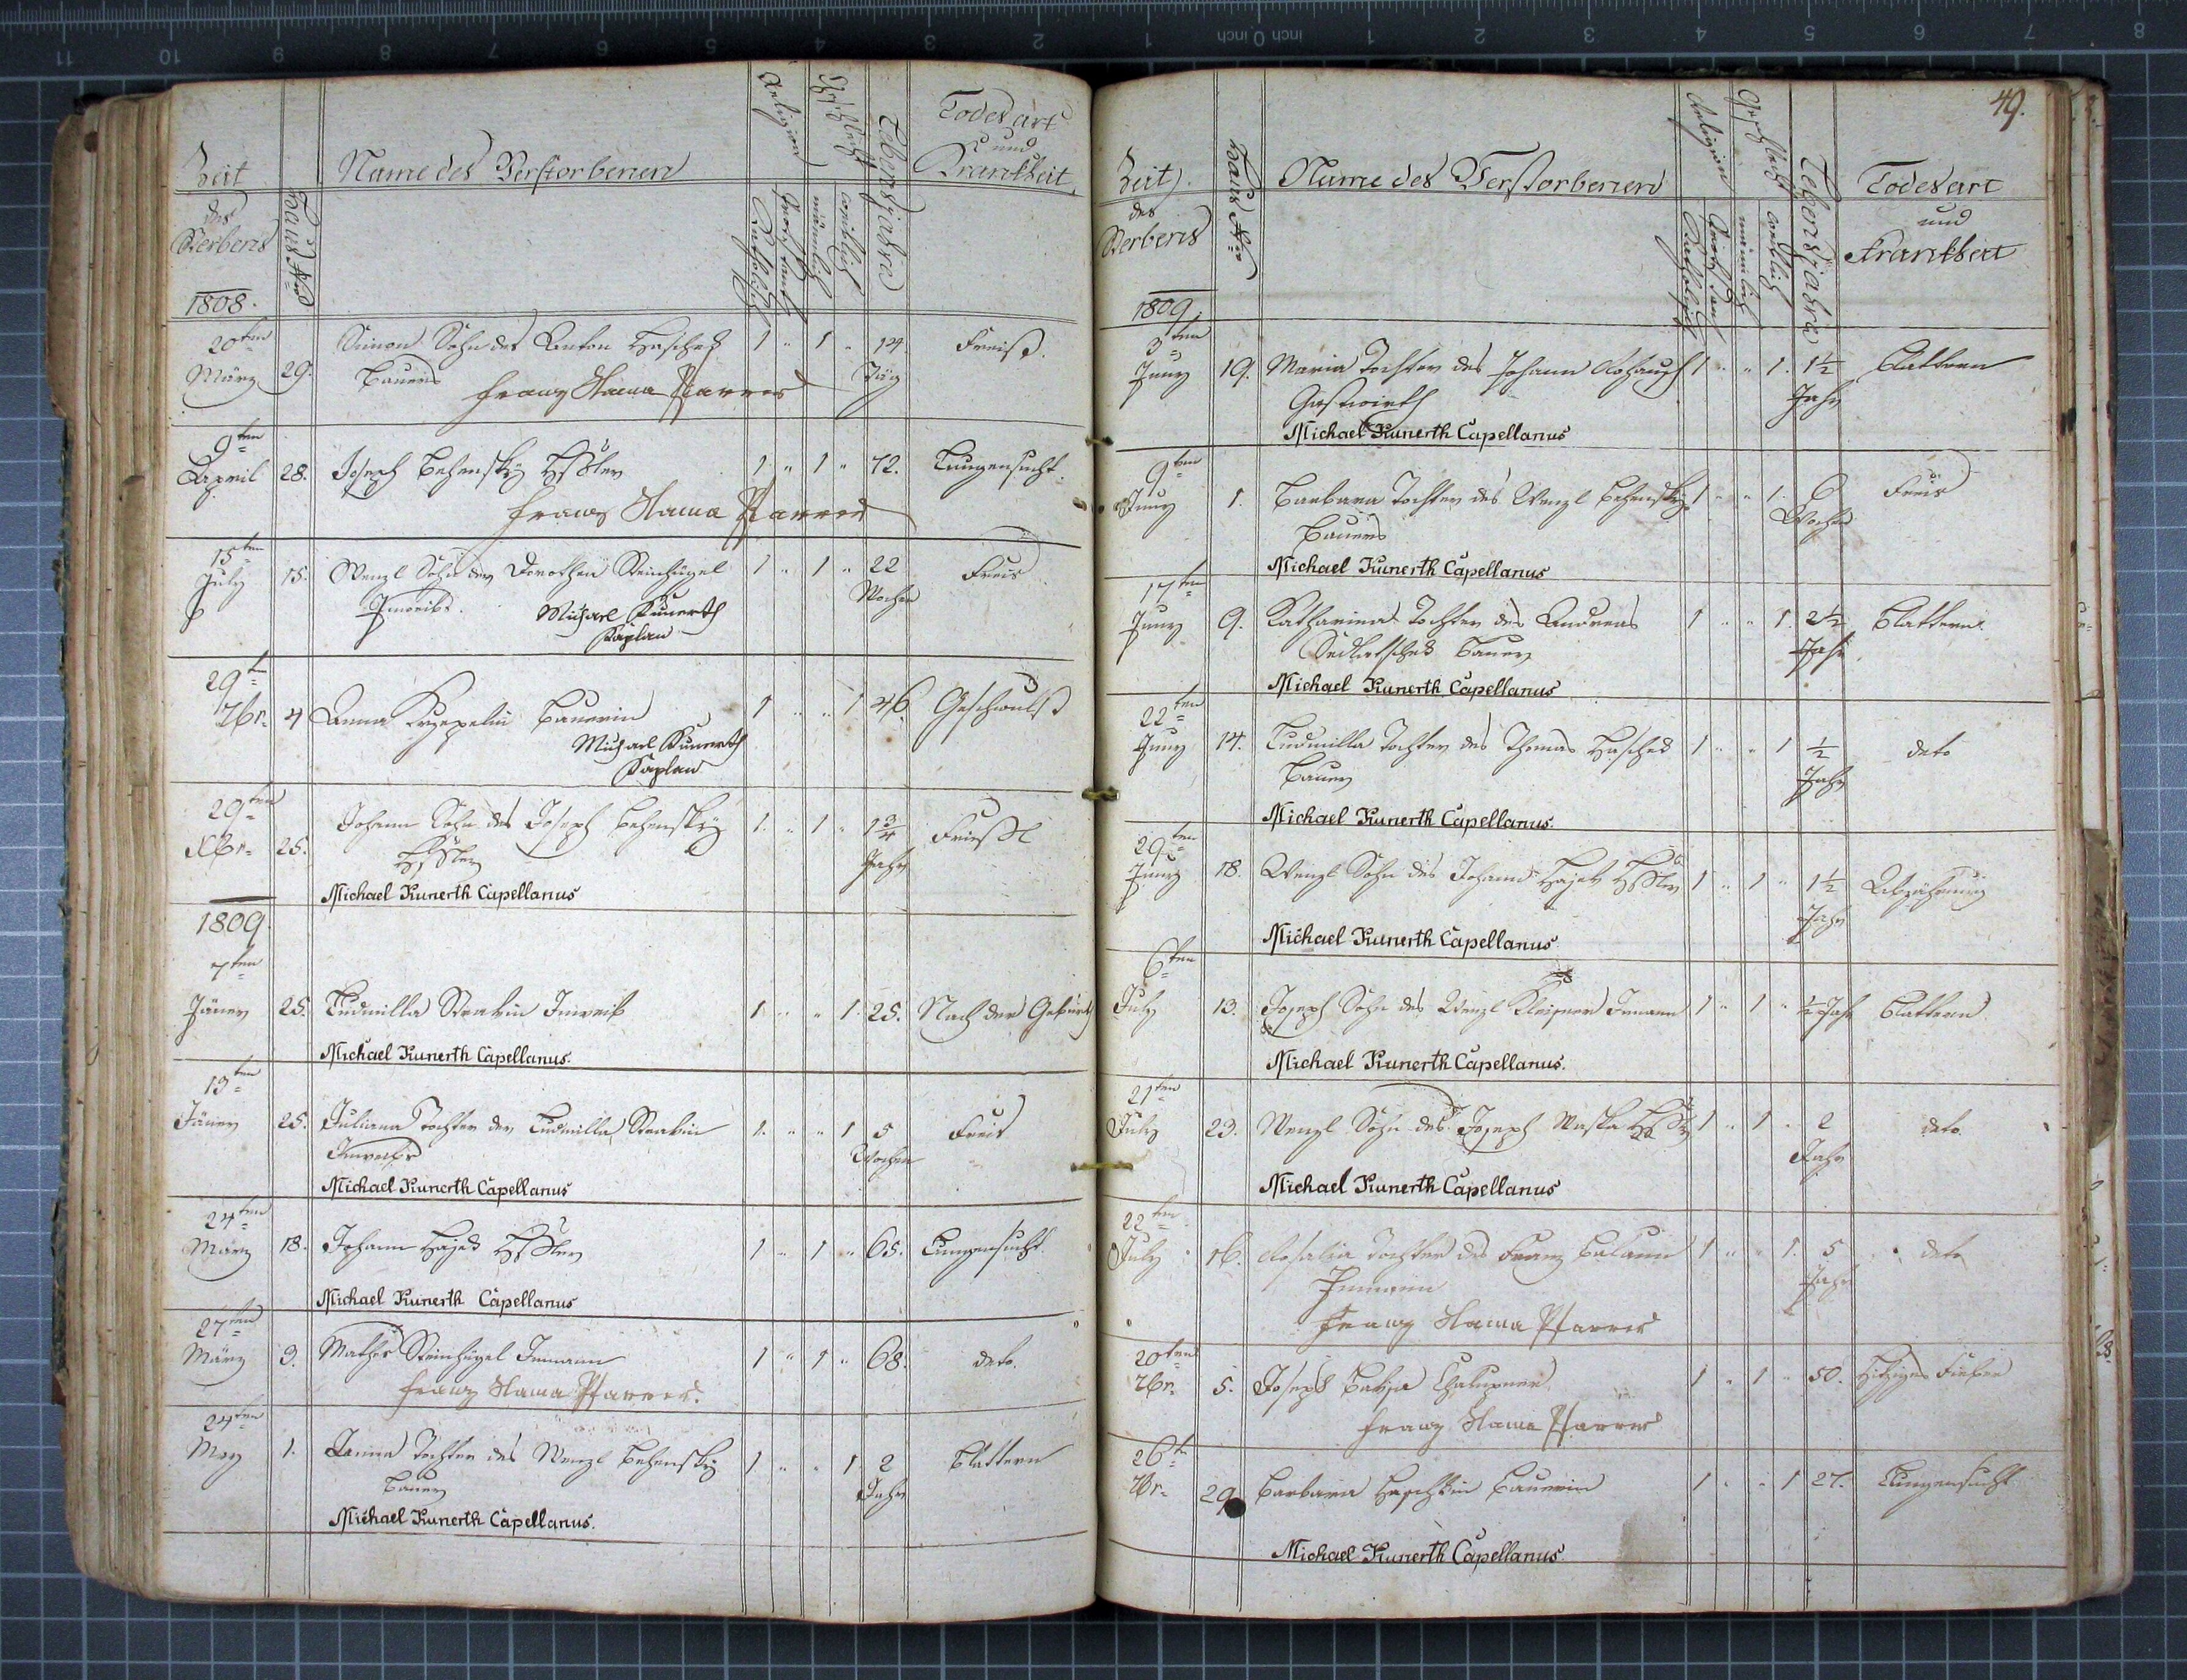 Zeit
des
Sterbens
Haus Nro
Name des Verstorbenen
Religion
Katholisch
Protestant
Geschlecht
männlich
weiblich
Lebensjahre
Todesart
und
Krankheit
1808.
20ten März 29. Simon Sohn des Anton Haschek 1 " 1 " 14. Freiß.
Bauers Täg
Franz Slama Pfarrer
9ten April 28. Joseph Behensky 1 " 1 " 72. Lungensucht.
Franz Slama Pfarrer
15ten July 15. Wenzl Sohn der Dorothea Steinhügel 1 " 1 " 22 Freis
Wochen
Michael Kunerth
Kaplan
29t 7br. 4 Anna Bauerin 1 " " 1 46. Geschwulst
Michael Kunerth
Kaplan
29ten Xbr. 25. Johann Sohn des Joseph Behensky 1. " 1 " 1 3/4
Jahr
Michael Kunerth Capellanus
1809.
7ten Jäner 25. Ludmilla Strakin Inweib 1 " " 1. 25. Nach der Geburt
Michael Kunerth Capellanus.
13ten Jäner 25. Juliana Tochter der Ludmilla Strakin 1. " " 1 5 Freis
Inweibs Wochen
Michael Kunerth Capellanus
24ten März 18. Johann Hajek 1 " 1 " 65. Lungensucht
Michael Kunerth Capellanus
27ten März 9. Mathes Steinhügel Inmann 1 " 1 " 68. deto.
Franz Slama Pfarrer.
24ten May 1. Anna Tochter des Wenzl Behensky 1 " " 1 2 Blattern
Bauer Jahr
Michael Kunerth Capellanus.
49.
Zeit
des
Sterbens
Haus Nro
Name des Verstorbenen
Religion
Katholisch
Protestant
Geschlecht
männlich
weiblich
Lebensjahre
Todesart
und
Krankheit
1809.
3ten Juny 19. Maria Tochter des Johann 1 " " 1. 1 1/2 Blattern
Gastwirth Jahr
Michael Kunerth Capellanus
9ten Juny 1. Barbara Tochter des Wenzl Behensky 1 " " 1. 6 Freis
Bauers Wochen
Michael Kunerth Capellanus
17ten Juny 9. Katharina Tochter des Andreas 1 " " 1. 2 1/2 Blattern.
Sedlatschek Bauer Jahr
Michael Kunerth Capellanus
22ten Juny 14. Ludmilla Tochter des Thomas Haschek 1 " " 1 1/2 deto
Bauer Jahr
Michael Kunerth Capellanus.
29ten Juny 18. Wenzl Sohn des Johann Hajek 1 " 1 " 1 1/2 Abzehrung
Jahr
Michael Kunerth Capellanus
6ten July 13. Joseph Sohn des Wenzl Inmann 1 " 1 " 1/2 Jahr Blattern
Michael Kunerth Capellanus.
21ten July 23. Wenzl Sohn des Joseph 1 " 1 " 2 deto
Jahr
Michael Kunerth Capellanus
22ten July 16. Rosalia Tochter des Franz 1 " " 1. 5 deto
Jahr
Franz Slama Pfarrer
20ten 7br. 5. Joseph Chalupner 1 " 1 " 50. Hitziges Fieber
Franz Slama Pfarrer
26t 7br. 29 Barbara Haschkin Bauerin 1 " " 1 27. Lungensucht
Michael Kunerth Capellanus
11 10 9 8 7 6 5 4 3 2 1 0 inch
inch 0 1 2 3 4 5 6 7 8